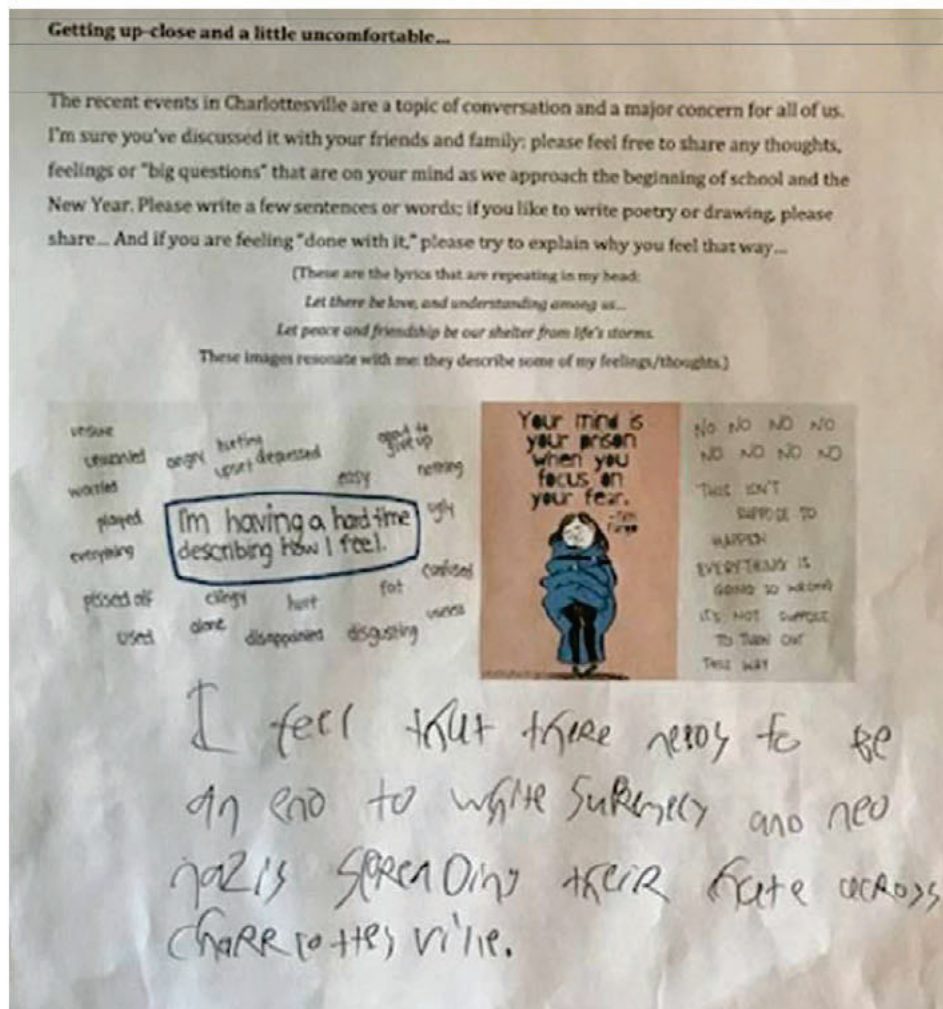 Getting up-close and a little uncomfortable...
The recent events in Charlottesville are a topic of conversation and a major concern for all of us.
I'm sure you've discussed it with your friends and family; please feel free to share any thoughts,
feelings or "big questions" that are on your mind as we approach the beginning of school and the
New Year. Please write a few sentences or words; if you like to write poetry or drawing, please
share... And if you are feeling "done with it," please try to explain why you feel that way...
(These are the lyrics that are repeating in my head:
Let there be love, and understanding among us...
Let peace and friendship be our shelter from life's storms.
These images resonate with me: they describe some of my feelings/thoughts.)
unsure
unwanted angry hurting upset depressed good to give up
worried easy nothing
played ugly
everything confused
I'm having a hard time
describing how I feel.
pissed off clingy hurt fat
used alone disappointed disgusting useless
Your mind is
your prison
when you
focus on
your fear.
-Tim
NO NO NO NO
NO NO NO NO
THIS ISN'T
SUPPOSE TO
HAPPEN
EVERYTHING IS
GOING SO WRONG
IT'S NOT SUPPOSE
TO TURN OUT
THIS WAY
I feel that there needs to be
an end to white Supremecy and neo
nazis spreading their hate across
charrlottesville.